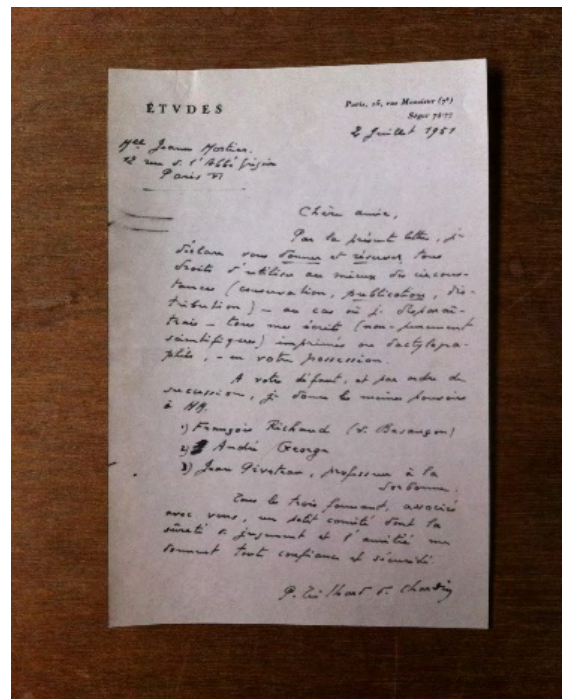 ÉTVDES
Paris, 15, rue Monsieur (7e)
Ségur 74-77
2 Juillet 1951
Mlle Jeanne Mortier
12 rue de l'Abbé
Paris VI
Chère amie,
Par la présente lettre, je
déclare vous donner et réserver tous
droits d'utiliser au mieux des circons-
tances (conservation, publication, dis-
tribution) – au cas où je disparaî-
trais – tous mes écrits (non-purement
scientifiques) imprimés ou dactylogra-
phiés, – en votre possession.
A votre défaut, et par ordre de
succession, je donne les mêmes pouvoirs
à MM.
1) François Richaud (de Besançon)
2) André George
3) Jean Piveteau, professeur à la
Sorbonne.
Tous les trois formant, associés
avec vous, un petit comité dont la
sûreté de jugement et l'amitié me
donnent toute confiance et sécurité.
P. Teilhard de Chardin